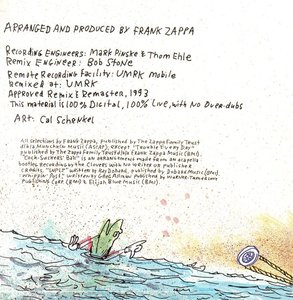 ARRANGED AND PRODUCED BY FRANK ZAPPA
RECORDING ENGINEERS: MARK PINSKE & THOM EHLE
REMIX ENGINEER: BOB STONE
REMOTE RECORDING FACILITY: UMRK MOBILE
REMIXED AT: UMRK
APPROVED REMIX & REMASTER, 1993
THIS MATERIAL IS 100% DIGITAL, 100% LIVE, WITH NO OVER-DUBS
ART: CAL SCHENKEL
ALL SELECTIONS BY FRANK ZAPPA, PUBLISHED BY THE ZAPPA FAMILY TRUST
d/b/a MUNCHKIN MUSIC (ASCAP), EXCEPT "TROUBLE EVERY DAY"
PUBLISHED BY THE ZAPPA FAMILY TRUST d/b/a FRANK ZAPPA MUSIC (BMI).
IS AN ARRANGEMENT MADE FROM AN ACAPELLA
BOOTLEG RECORDING BY THE CLOVERS WITH NO WRITER OR PUBLISHER
CREDITS. WRITTEN BY PUBLISHED BY MUSIC (BMI).
"WHIPPING POST", WRITTEN BY GREG ALLMAN PUBLISHED BY WARNER-TAMERLANE
PUBLISHING CORP. (BMI) & ELIJAH BLUE MUSIC (BMI).